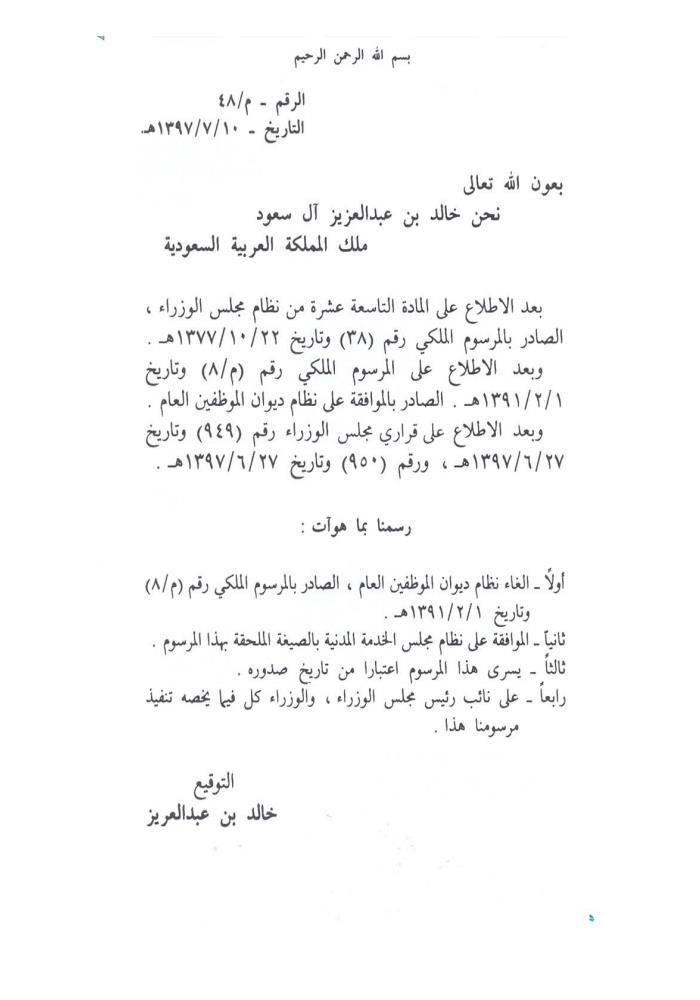 بسم الله الرحمن الرحيم
الرقم - م/٤٨
التاريخ - ١٣٩٧/٧/١٠هـ.
بعون الله تعالى
نحن خالد بن عبدالعزيز آل سعود
ملك المملكة العربية السعودية
بعد الاطلاع على المادة التاسعة عشرة من نظام مجلس الوزراء ،
الصادر بالمرسوم الملكي رقم (٣٨) وتاريخ ١٣٧٧/١٠/٢٢هـ .
وبعد الاطلاع على المرسوم الملكي رقم (م/٨) وتاريخ
١٣٩١/٢/١هـ . الصادر بالموافقة على نظام ديوان الموظفين العام .
وبعد الاطلاع على قراري مجلس الوزراء رقم (٩٤٩) وتاريخ
١٣٩٧/٦/٢٧هـ ، ورقم (٩٥٠) وتاريخ ١٣٩٧/٦/٢٧هـ .
رسمنا بما هوآت :
أولاً ـ الغاء نظام ديوان الموظفين العام ، الصادر بالمرسوم الملكي رقم (م/٨)
وتاريخ ١٣٩١/٢/١هـ .
ثانياً ـ الموافقة على نظام مجلس الخدمة المدنية بالصيغة الملحقة بهذا المرسوم .
ثالثاً ـ يسرى هذا المرسوم اعتبارا من تاريخ صدوره .
رابعاً ـ على نائب رئيس مجلس الوزراء ، والوزراء كل فيما يخصه تنفيذ
مرسومنا هذا .
التوقيع
خالد بن عبدالعريز
٥